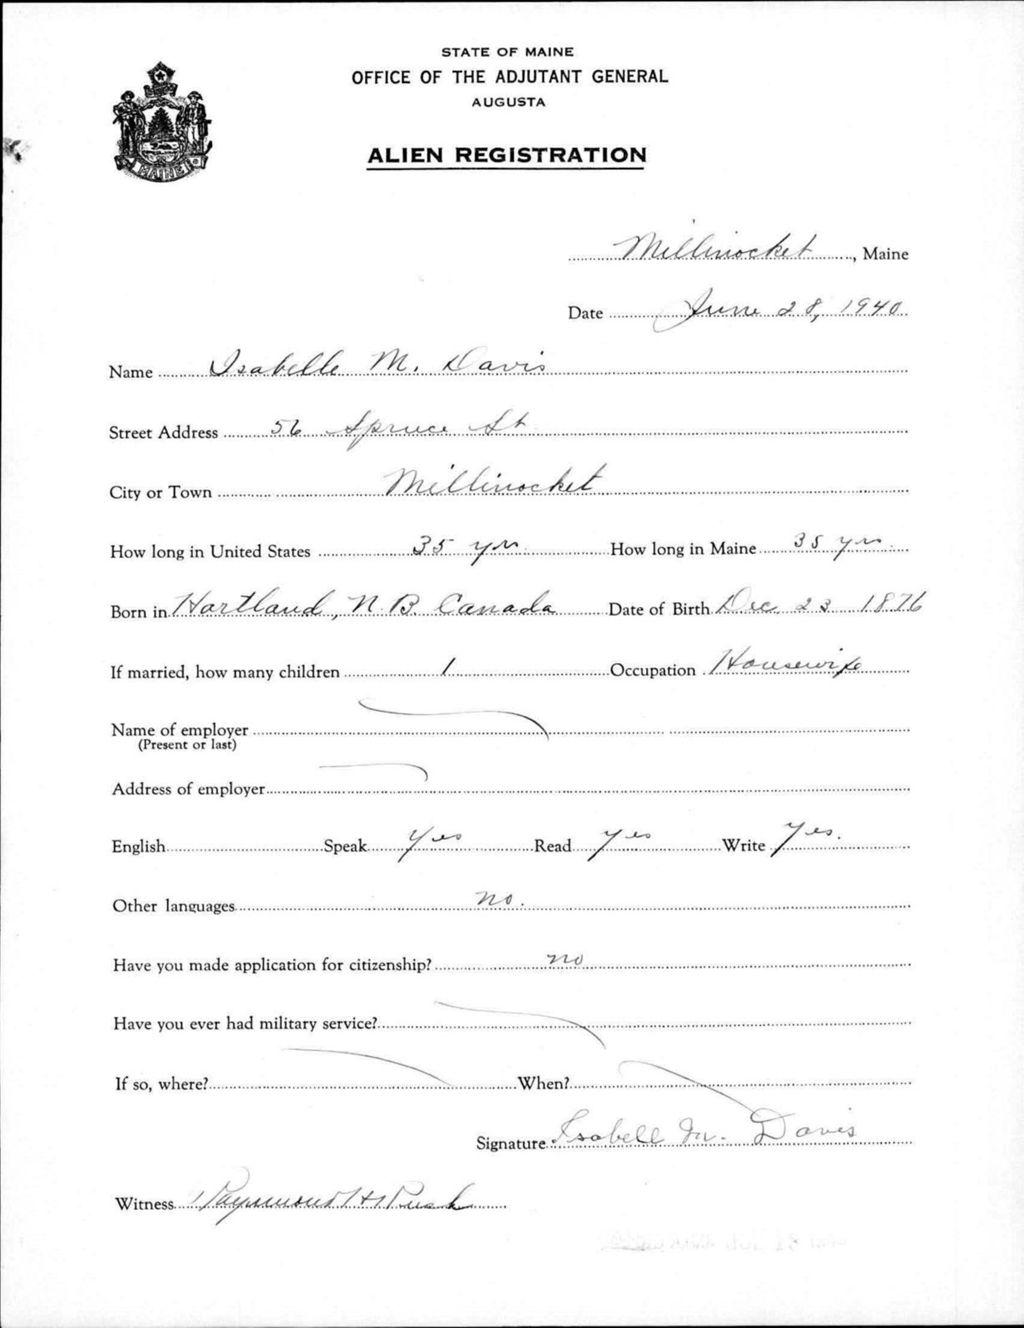 STATE OF MAINE
OFFICE OF THE ADJUTANT GENERAL
AUGUSTA
ALIEN REGISTRATION
MAINE
Millinocket, Maine
Date June 28, 1940
Name Isabelle M. Davis
Street Address 56 Spruce St
City or Town Millinocket
How long in United States 35 yrs How long in Maine 35 yrs
Born in Hartland, N B Canada Date of Birth Dec 23 1876
If married, how many children 1 Occupation Housewife
Name of employer
(Present or last)
Address of employer
English Speak Yes Read Yes Write Yes.
Other languages no.
Have you made application for citizenship? no
Have you ever had military service?
If so, where? When?
Signature Isabell M. Davis
Witness Raymond H Rush